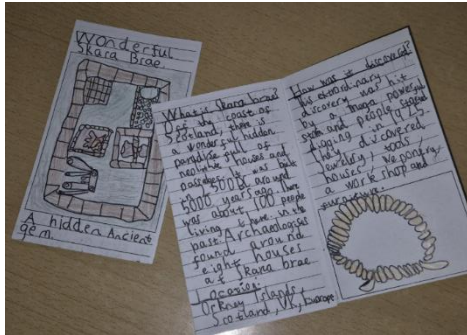 Wonderful
Skara Brae.
A hidden Ancient
gem.
What is Skara brae?
Off the coast of
Scotland, there is
a wonderful hidden
paradise full of
neolithic houses and
5000 years ago. There
was about 100 people
living is here in the
past. Archaeologists
found around
eight houses
at Skara brae
Location:
Orkney Islands,
Scotland, UK, Europe
How was it discovered?
This extrordinary
discovery was hit
by a mega powerful
storm and people started
digging in 1925.
They discovered
jewelry, tools,
houses, weponry,
a work shop and
furniture.